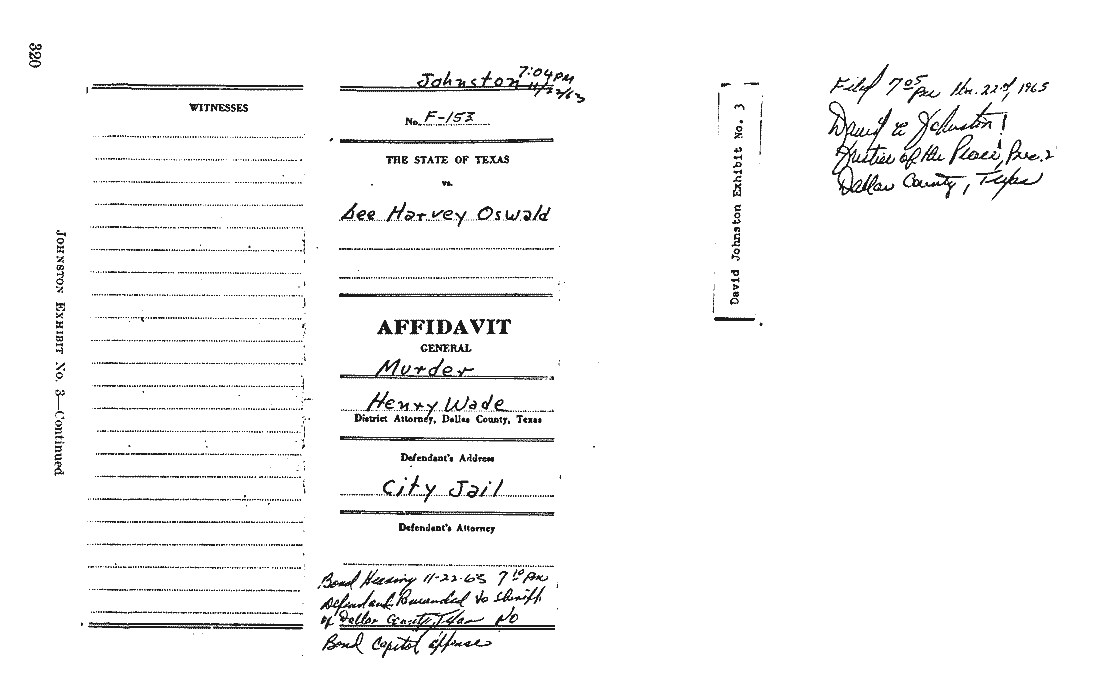 320
JOHNSTON EXHIBIT No. 3—Continued
WITNESSES
Johnston 7:04 PM
11/22/63
No. F-153
THE STATE OF TEXAS
vs.
Lee Harvey Oswald
AFFIDAVIT
GENERAL
Murder
Henry Wade
District Attorney, Dallas County, Texas
Defendant's Address
City Jail
Defendant's Attorney
Bond Hearing 11-22-63 7 10 PM
Defendant Remanded to Sheriff
of Dallas County, Texas No
Bond Capitol offense
David Johnston Exhibit No. 3
Filed 7 05 pm Nov. 22nd, 1963
David L Johnston
Justice of the Peace, Prec. 2
Dallas County, Texas